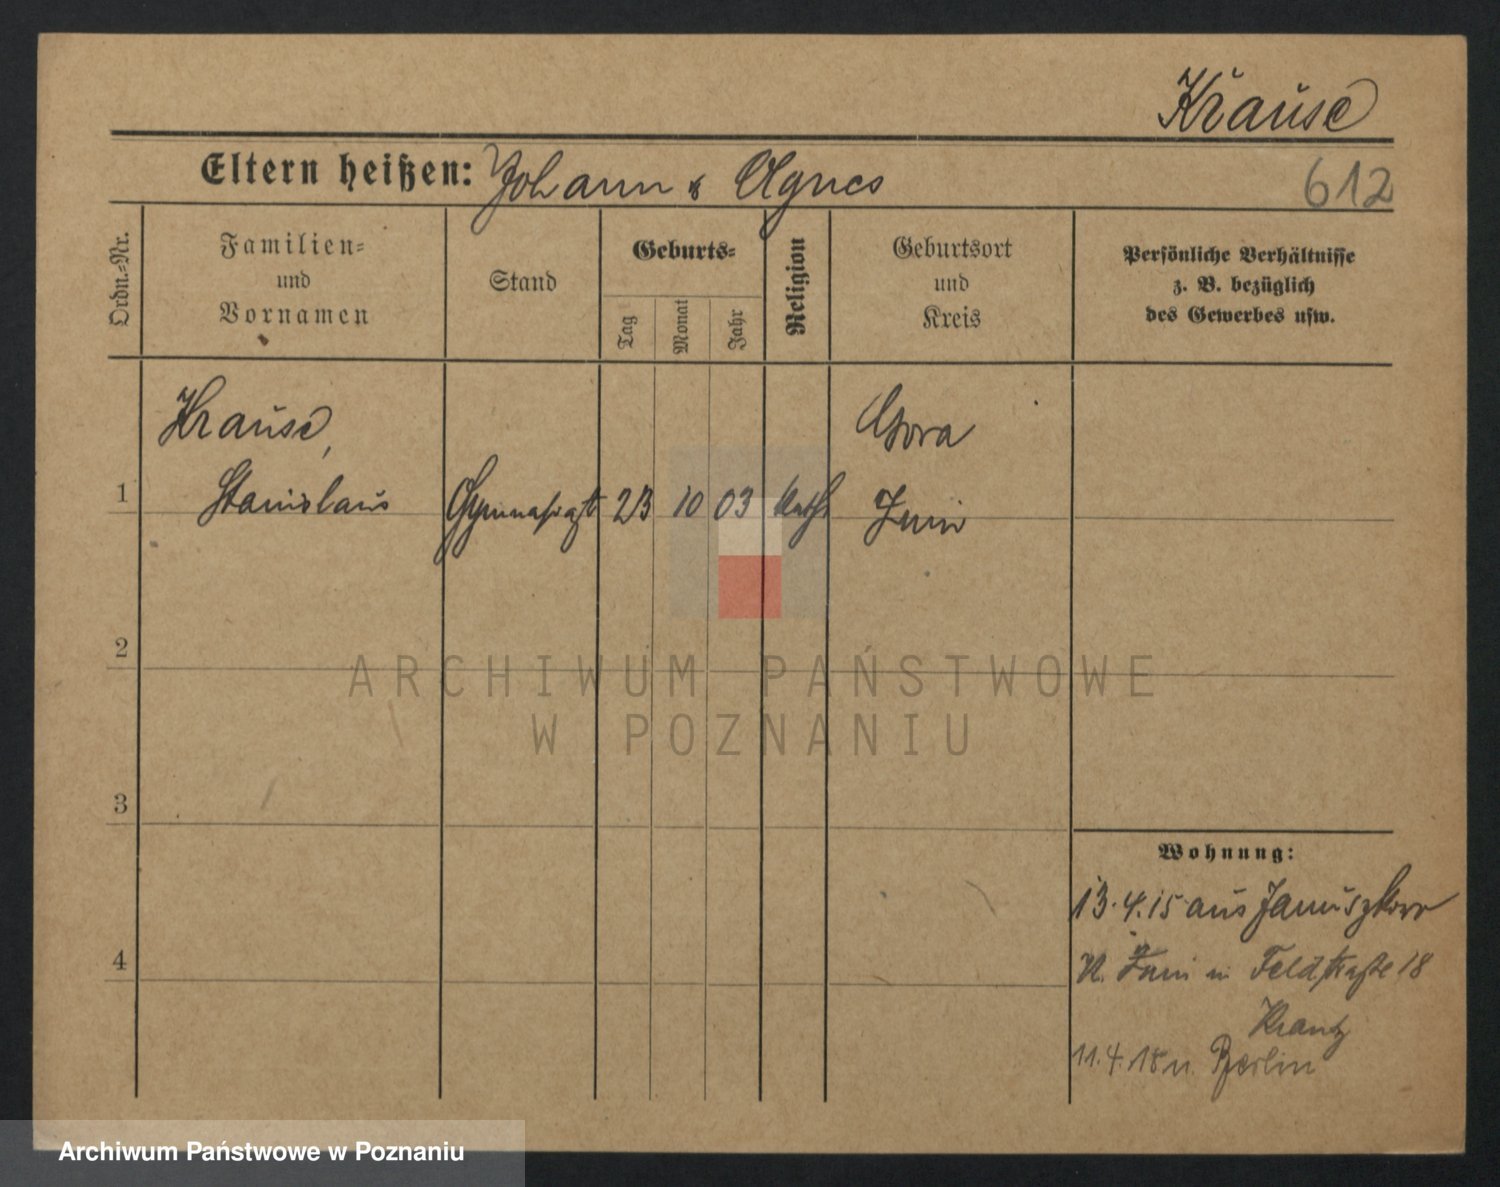 Krause
Eltern heißen: Johann & Agnes
612
Ordn.-Nr.
Familien-
und
Vornamen
Stand
Geburts-
Tag
Monat
Jahr
Religion
Geburtsort
und
Kreis
Persönliche Verhältnisse
z. B. bezüglich
des Gewerbes usw.
Krause,
Gora
1 Stanislaus Gymnasiast 23 10 03 kath
Znin
2
3
4
Wohnung:
13.4.15 aus Januszkowo
K. Znin in Feldstraße 18
Krantz
11.4.18 n. Berlin
ARCHIWUM PAŃSTWOWE
W POZNANIU
Archiwum Państwowe w Poznaniu